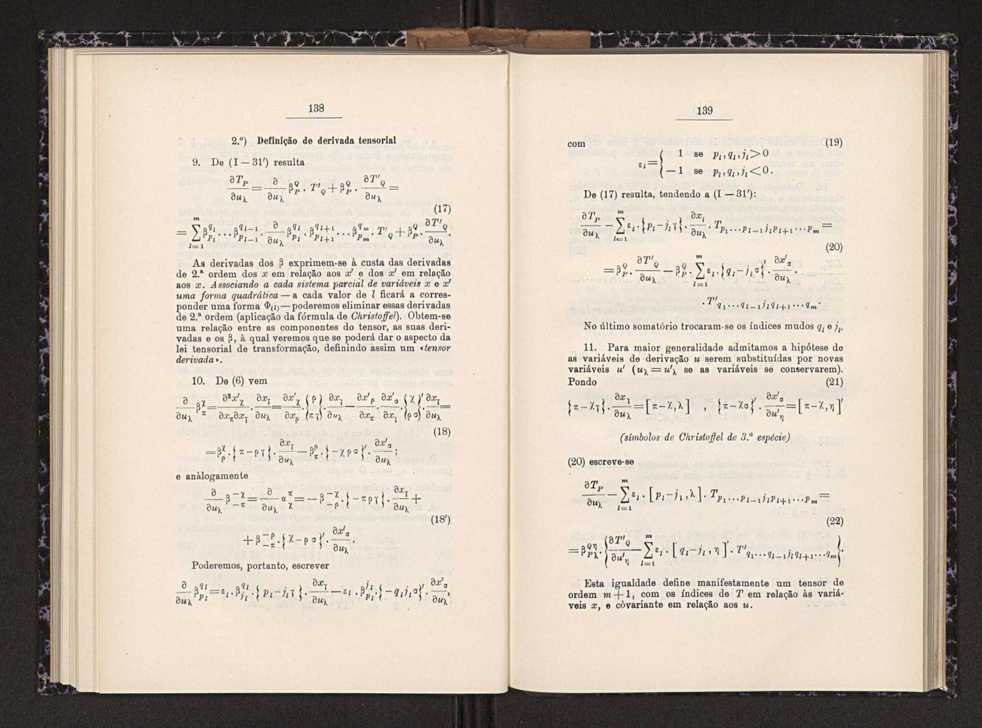 138
2.º) Definição de derivada tensorial
9. De (I — 31′) resulta
∂T_P/∂u_λ = ∂/∂u_λ β_P^Q . T′_Q + β_P^Q . ∂T′_Q/∂u_λ =
(17)
= Σ_{l=1}^{m} β_{p_1}^{q_1} ... β_{p_{l-1}}^{q_{l-1}} . ∂/∂u_λ β_{p_l}^{q_l} . β_{p_{l+1}}^{q_{l+1}} ... β_{p_m}^{q_m} . T′_Q + β_P^Q ∂T′_Q/∂u_λ .
As derivadas dos β exprimem-se à custa das derivadas
de 2.ª ordem dos x em relação aos x′ e dos x′ em relação
aos x. Associando a cada sistema parcial de variáveis x e x′
uma forma quadrática — a cada valor de l ficará a corres-
ponder uma forma Φ_(l) — poderemos eliminar essas derivadas
de 2.ª ordem (aplicação da fórmula de Christoffel). Obtem-se
uma relação entre as componentes do tensor, as suas deri-
vadas e os β, à qual veremos que se poderá dar o aspecto da
lei tensorial de transformação, definindo assim um «tensor
derivada».
10. De (6) vem
∂/∂u_λ β_π^χ = ∂²x′_χ/∂x_π∂x_γ . ∂x_γ/∂u_λ = ∂x′_χ/∂x_ρ {ρ / πγ} ∂x_γ/∂u_λ — ∂x′_ρ/∂x_π . ∂x′_σ/∂x_γ {χ / ρσ}′ ∂x_γ/∂u_λ =
(18)
= β_ρ^χ . {π — ργ} . ∂x_γ/∂u_λ — β_π^ρ . {— χρσ}′ . ∂x′_σ/∂u_λ ;
e anàlogamente
∂/∂u_λ β_{-π}^{-χ} = ∂/∂u_λ α_χ^π = — β_{-ρ}^{-χ} . {— πργ} . ∂x_γ/∂u_λ +
(18′)
+ β_{-π}^{-ρ} . {χ — ρσ}′ . ∂x′_σ/∂u_λ .
Poderemos, portanto, escrever
∂/∂u_λ β_{p_l}^{q_l} = ε_l . β_{j_l}^{q_l} . {p_l — j_l γ} . ∂x_γ/∂u_λ — ε_l . β_{p_l}^{j_l} . {— q_l j_l σ}′ . ∂x′_σ/∂u_λ ,
139
com (19)
ε_l = { 1 se p_l, q_l, j_l > 0
— 1 se p_l, q_l, j_l < 0.
De (17) resulta, tendendo a (I — 31′):
∂T_P/∂u_λ — Σ_{l=1}^{m} ε_l . {p_l — j_l γ} . ∂x_γ/∂u_λ . T_{p_1 ... p_{l-1} j_l p_{l+1} ... p_m} =
(20)
= β_P^Q . ∂T′_Q/∂u_λ — β_P^Q . Σ_{l=1}^{m} ε_l . {q_l — j_l σ}′ . ∂x′_σ/∂u_λ .
. T′_{q_1 ... q_{l-1} j_l q_{l+1} ... q_m} .
No último somatório trocaram-se os índices mudos q_l e j_l.
11. Para maior generalidade admitamos a hipótese de
as variáveis de derivação u serem substituídas por novas
variáveis u′ (u_λ = u′_λ se as variáveis se conservarem).
Pondo (21)
{π — χγ} . ∂x_γ/∂u_λ = [π — χ, λ] , {π — χσ}′ . ∂x′_σ/∂u′_η = [π — χ, η]′
(símbolos de Christoffel de 3.ª espécie)
(20) escreve-se
∂T_P/∂u_λ — Σ_{l=1}^{m} ε_l . [p_l — j_l, λ] . T_{p_1 ... p_{l-1} j_l p_{l+1} ... p_m} =
(22)
= β_{Pλ}^{Qη} . {∂T′_Q/∂u′_η — Σ_{l=1}^{m} ε_l . [q_l — j_l, η]′ . T′_{q_1 ... q_{l-1} j_l q_{l+1} ... q_m}} .
Esta igualdade define manifestamente um tensor de
ordem m + 1, com os índices de T em relação às variá-
veis x, e còvariante em relação aos u.